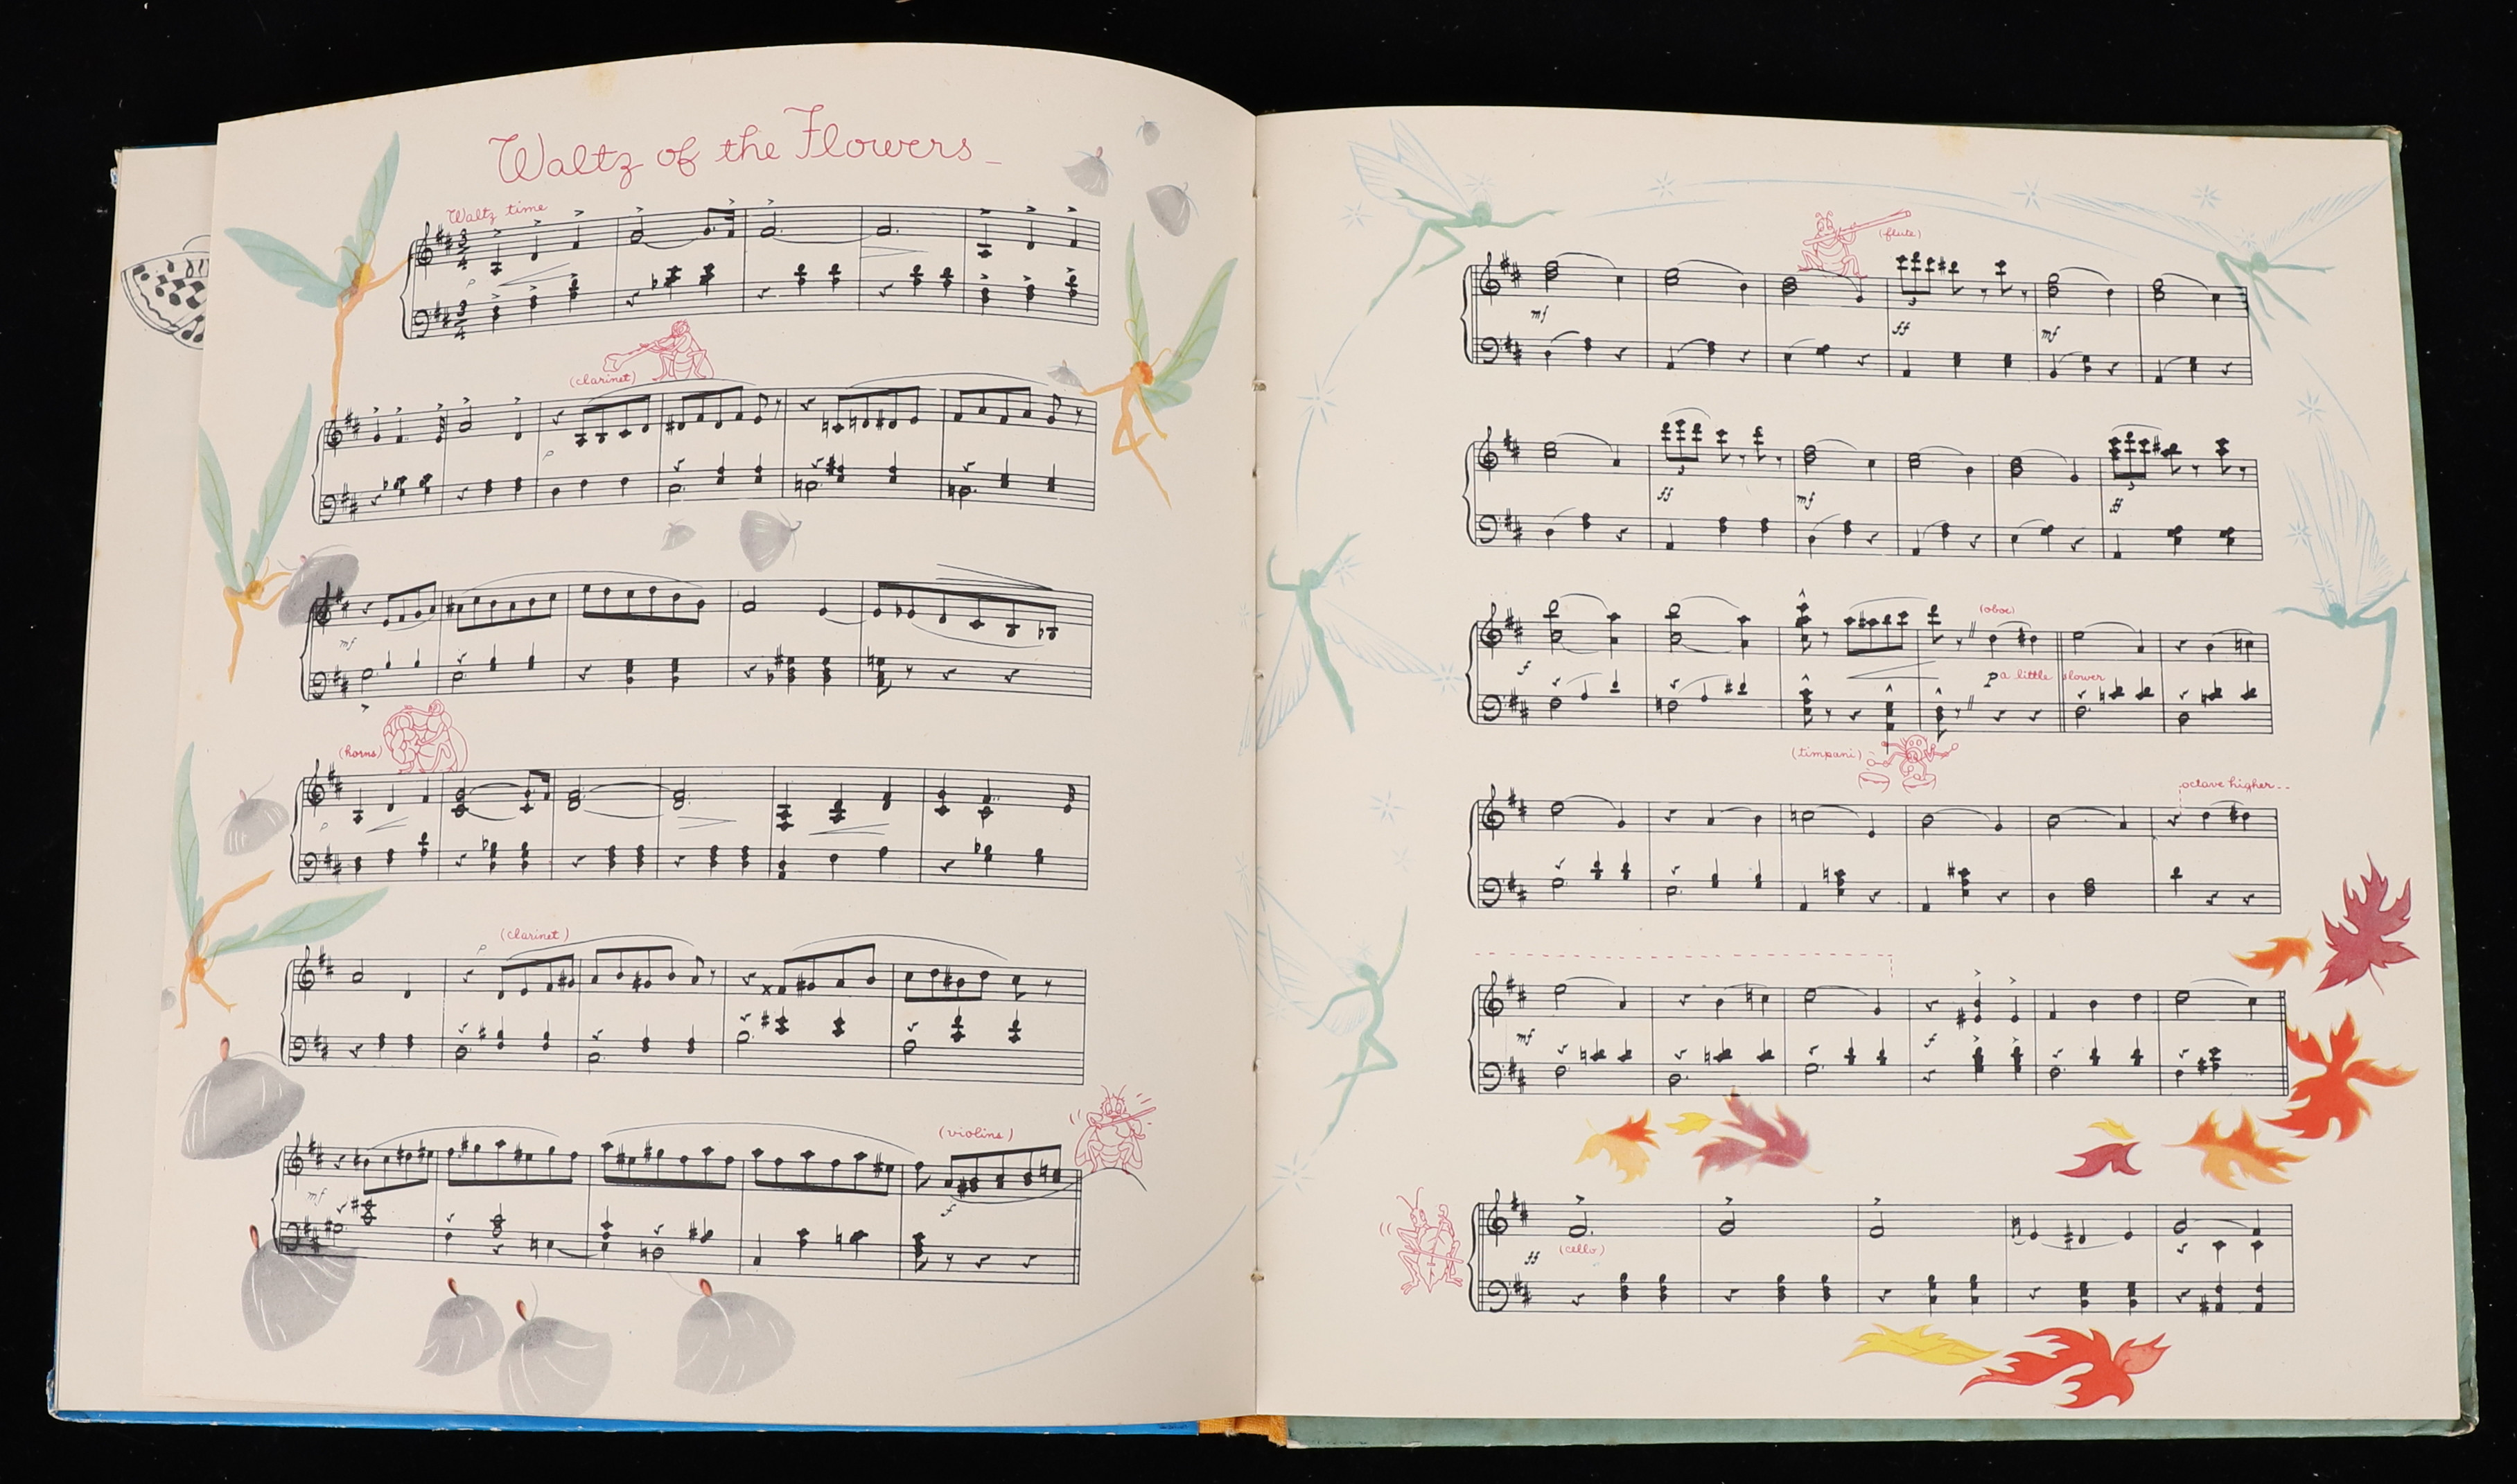 Waltz of the Flowers
Waltz time
p
(clarinet)
p
mf
(horns)
p
(clarinet)
p
(violins)
mf
f
(flute)
mf
ff
mf
ff
mf
ff
(oboe)
f
p a little slower
(timpani)
octave higher
mf
f
ff
(cello)